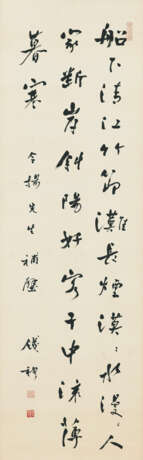 船下清江竹節灘長煙漠漠水漫漫人
家斷岸斜陽好客子中流薄
暮寒
令揚先生補壁
錢穆